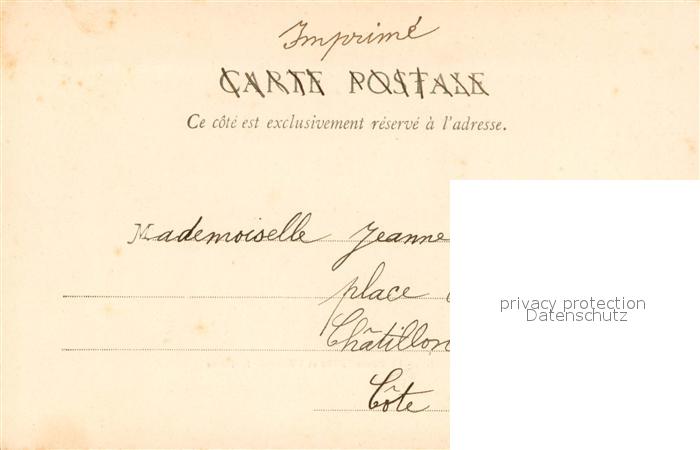 Imprimé
CARTE POSTALE
Ce côté est exclusivement réservé à l'adresse.
Mademoiselle Jeanne
place
Châtillon
Côte
privacy protection
Datenschutz